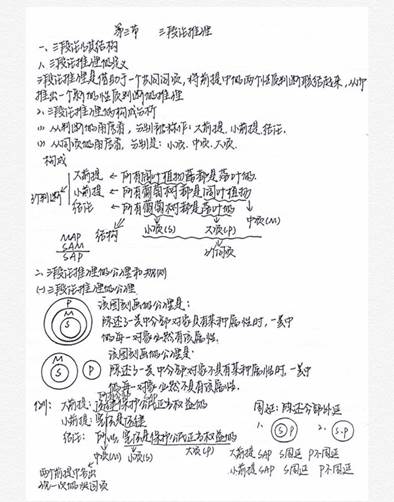 第三节 三段论推理
一、三段论及其结构
1、三段论推理的定义
三段论推理是借助于一个共同词项，将前提中的两个性质判断联结起来，从而
推出一个新的性质判断的推理
2、三段论推理的构成分析
(1) 从判断的角度看，分别被称作：大前提、小前提、结论.
(2) 从词项的角度看，分别是：小项、中项、大项.
构成
大前提 ← 所有阔叶植物都是落叶的.
三个判断 小前提 ← 所有葡萄树都是阔叶植物
结论 ← 所有葡萄树都是落叶的
MAP
SAM
SAP
结构
小项(S) 大项(P) 中项(M)
三个词项
二、三段论推理的公理和规则
(一) 三段论推理的公理
P
M
S
该图刻画的公理是：
陈述了一类中全部对象具有某种属性时，一类中
的每一对象必然具有该属性.
M
S
P
该图刻画的公理是：
陈述了一类中全部对象不具有某种属性时，一类中
的每一对象必然不具有该属性.
例： 大前提：法律保护公民正当权益的
小前提：宪法是法律
结论：所以，宪法是保护公民正当权益的
中项(M) 小项(S) 大项(P)
两个前提中各出
现一次的词项
周延：陈述全部外延
1. S P 2. S.P
大前提 SAP S周延 P不周延
小前提 SAP S周延 P不周延